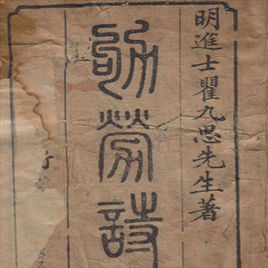 明進士瞿九思先生著
劬勞詩